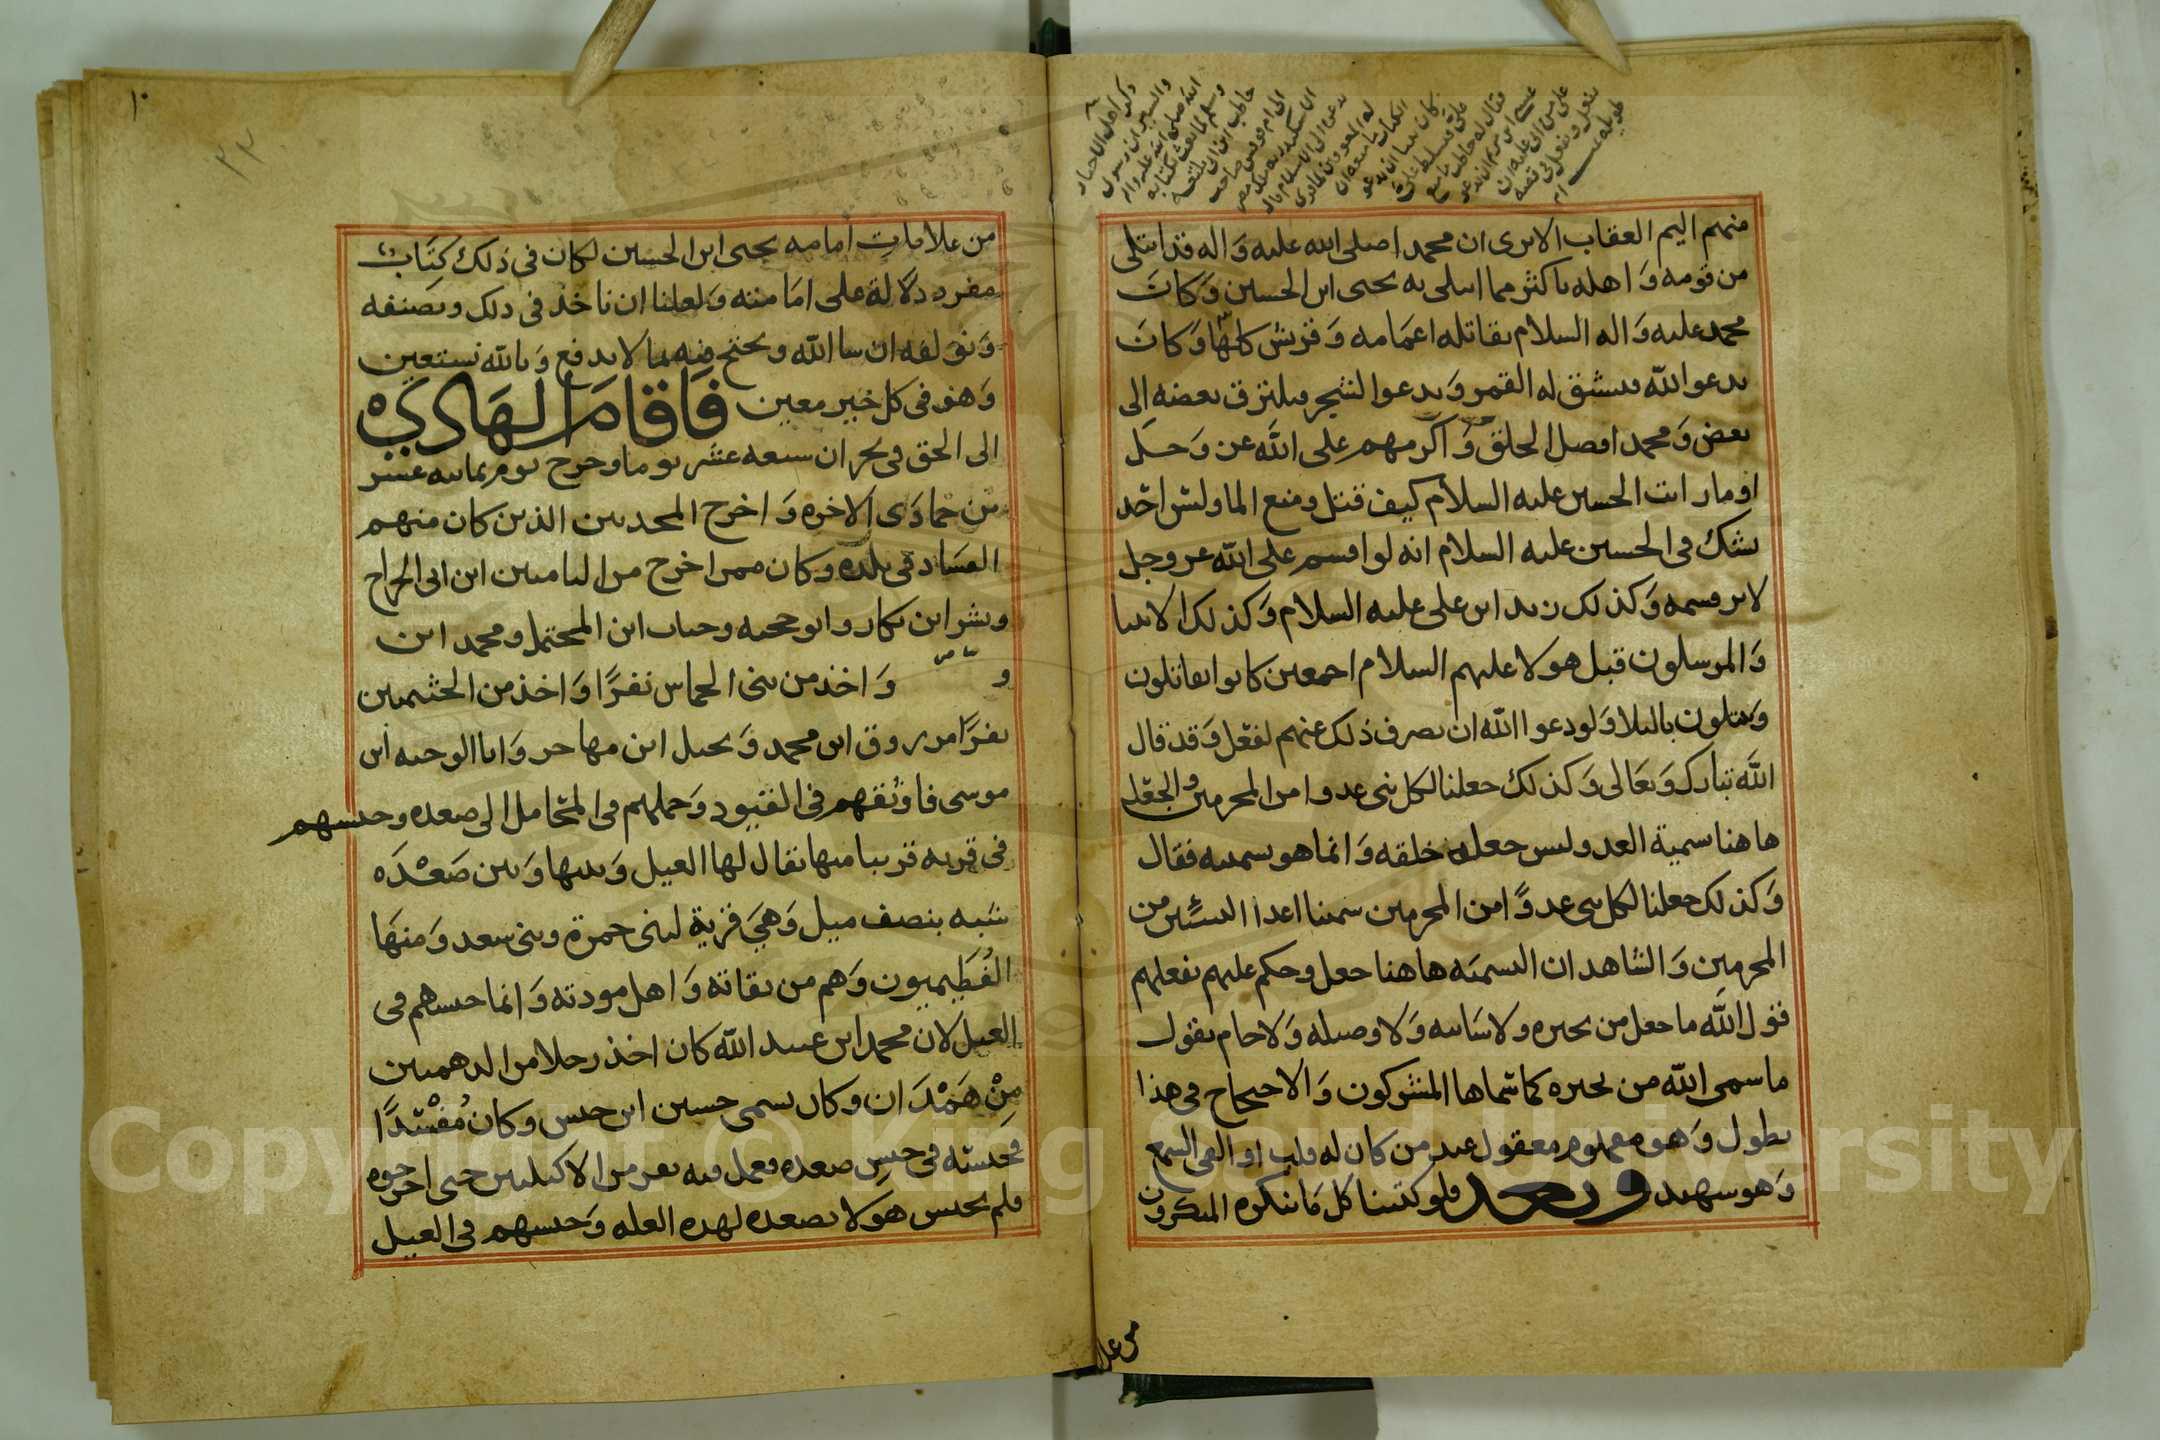 منهم اليم العقاب الاترى ان محمدا صلى الله عليه وَاله قد ابتلى
من قومه وَاهله باكثر مما ابتلى به يحيى ابن الحسين وَكانَ
محمد عليه وَاله السلام يقاتله اعمَامه وَقريش كلها وَكانَ
يدعو الله فينشق له القمر وَيدعوا لشجر فيلتزق بعضه الى
بعض وَمحمد افضل الخلق وَاكرمهم على اللَّه عز وَجل
اوما رايت الحسين عليه السلام كيف قتل ومنع الما وليس احد
يشك في الحسين عليه السلام انه لو اقسم على الله عز وجل
لابر قسمه وَكذلك زيد ابن على عليه السلام وَكذلك الانبيا
وَالمرسلون قبل هولا عليهم السلام اجمعين كانوا يقاتلون
وَيبتلون بالبلا وَلو دعوا اللّه ان يصرف ذلك عنهم لفعل وَقد قال
اللَّه تبارك وَتعَالى وَكذلك جعلنا لكل نبى عدوا من المجرمين وَالجعل
هاهنا تسمية العدو وليس جعله خلقه وَانما هو تسميته فقال
وَكذلك جعلنا لكل نبى عدوًّا من المجرمين سمينا اعدا النبيين من
المجرمين وَالشاهد ان التسميه هاهنا جعل وحكم عليهم بفعلهم
قول اللَّه ما جعل من بحيره ولا سَائبه وَلا وصيله وَلا حام يقول
ما سمى اللّه من بحيره كما سّماها المشركون وَالاحتجاج في هذا
يطول وَهو معلوم معقول عند من كان له قلب او القى السمع
وَهو شهيد وبعد فلو كتبنا كل مَا ينكره المنكرون
من علا
١٠
٢٣
من علامات امامه يحيى ابن الحسين لكان في ذلك كتَاب
مفرد دلالة على امَامته وَلعلنا ان ناخذ في ذلك وتصنيفه
وَنولفه ان شا اللّه ونحتج فيه بما لا يدفع وَبالله نستعين
وَهو في كل خير معين فَاقامَ الهَادي
الى الحق في نجران سبعه عشر يوما وخرج يوم ثمانيه عشر
من جمَادَى الاخره وَاخرج المحدثين الذين كان منهم
الفسَاد في بلده وكان ممن اخرج من اليامين ابن ابى الجراح
وبشر ابن بكار وابو جحيه وحباب ابن المحتمل ومحمد ابن
و وَاخذ من بنى الحماس نفرًا وَاخذ من الخثميين
نفرًا مرزوق ابن محمد وَيحيى ابن مهاجر وَابا الوجيه ابن
موسى فاوثقهم في القيود وَحملهم في المحَامل الى صعده وحبسهم
في قريه قريبا منها يقال لها الغيل وَبينها وَبين صَعْدَه
شبه بنصف ميل وَهيَ قرية لبنى حمزة وبنى سعد وَمنهَا
الفُطَيميون وَهم من ثقاته وَاهل مودته وَانما حبسهم في
الغيل لان محمد ابن عبيد اللّه كان اخذ رجلا من الدهميين
مِنْ هَمْدَان وكان يسمى حسين ابن حبس وكان مُفسْدًا
فحبسه في حبس صعده فعمل فيه نفر من الاكيليين حتى اخرجوه
فلم يحبس هولا بصعده لهذه العله وَحبسهم في الغيل
Copyright © King Saud University